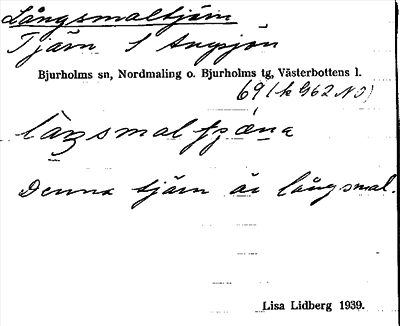 Långsmaltjärn
Tjärn S Angsjön
Bjurholms sn, Nordmaling o. Bjurholms tg, Västerbottens l.
69 (k G62 NO)
Denna tjärn är långsmal.
Lisa Lidberg 1939.